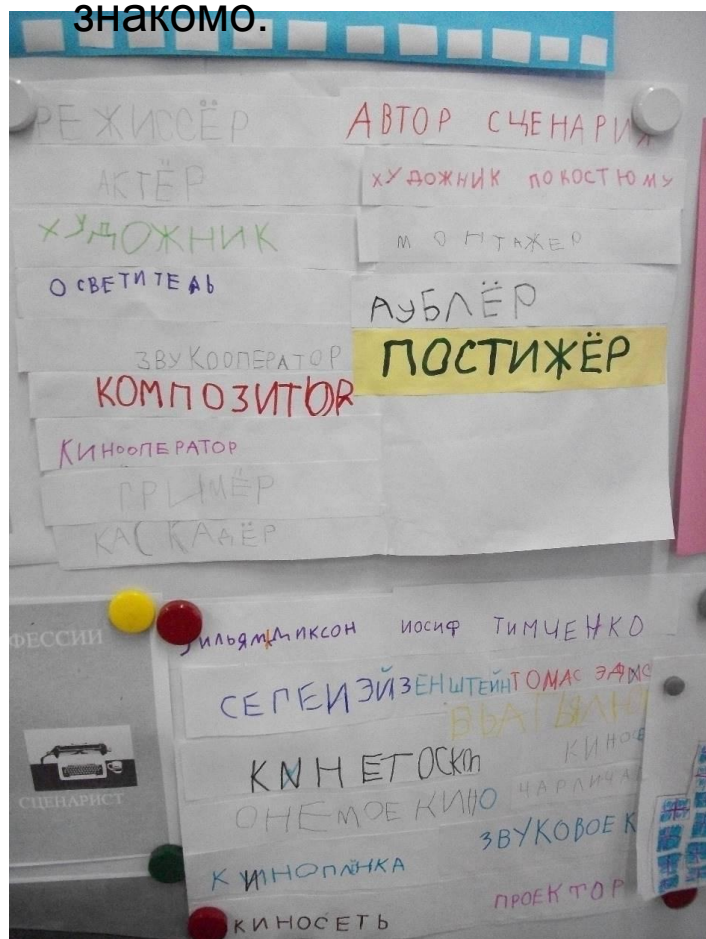 знакомо.
РЕЖИССЁР
АКТЁР
ХУДОЖНИК
ОСВЕТИТЕЛЬ
ЗВУКООПЕРАТОР
КОМПОЗИТОR
КИНООПЕРАТОР
ГРИМЁР
КАСКАДЁР
АВТОР СЦЕНАРИЯ
ХУДОЖНИК ПО КОСТЮМУ
МОНТАЖЕР
ДУБЛЁР
ПОСТИЖЁР
ФЕССИИ
СЦЕНАРИСТ
ИОСИФ ТИМЧЕНКО
СЕГЕИ ЭЙЗЕНШТЕЙН ТОМАС
КИНЕТОСКОП
НЕМОЕ КИНО
ЗВУКОВОЕ К
КИНОПЛЁНКА
ПРОЕКТОР
КИНОСЕТЬ